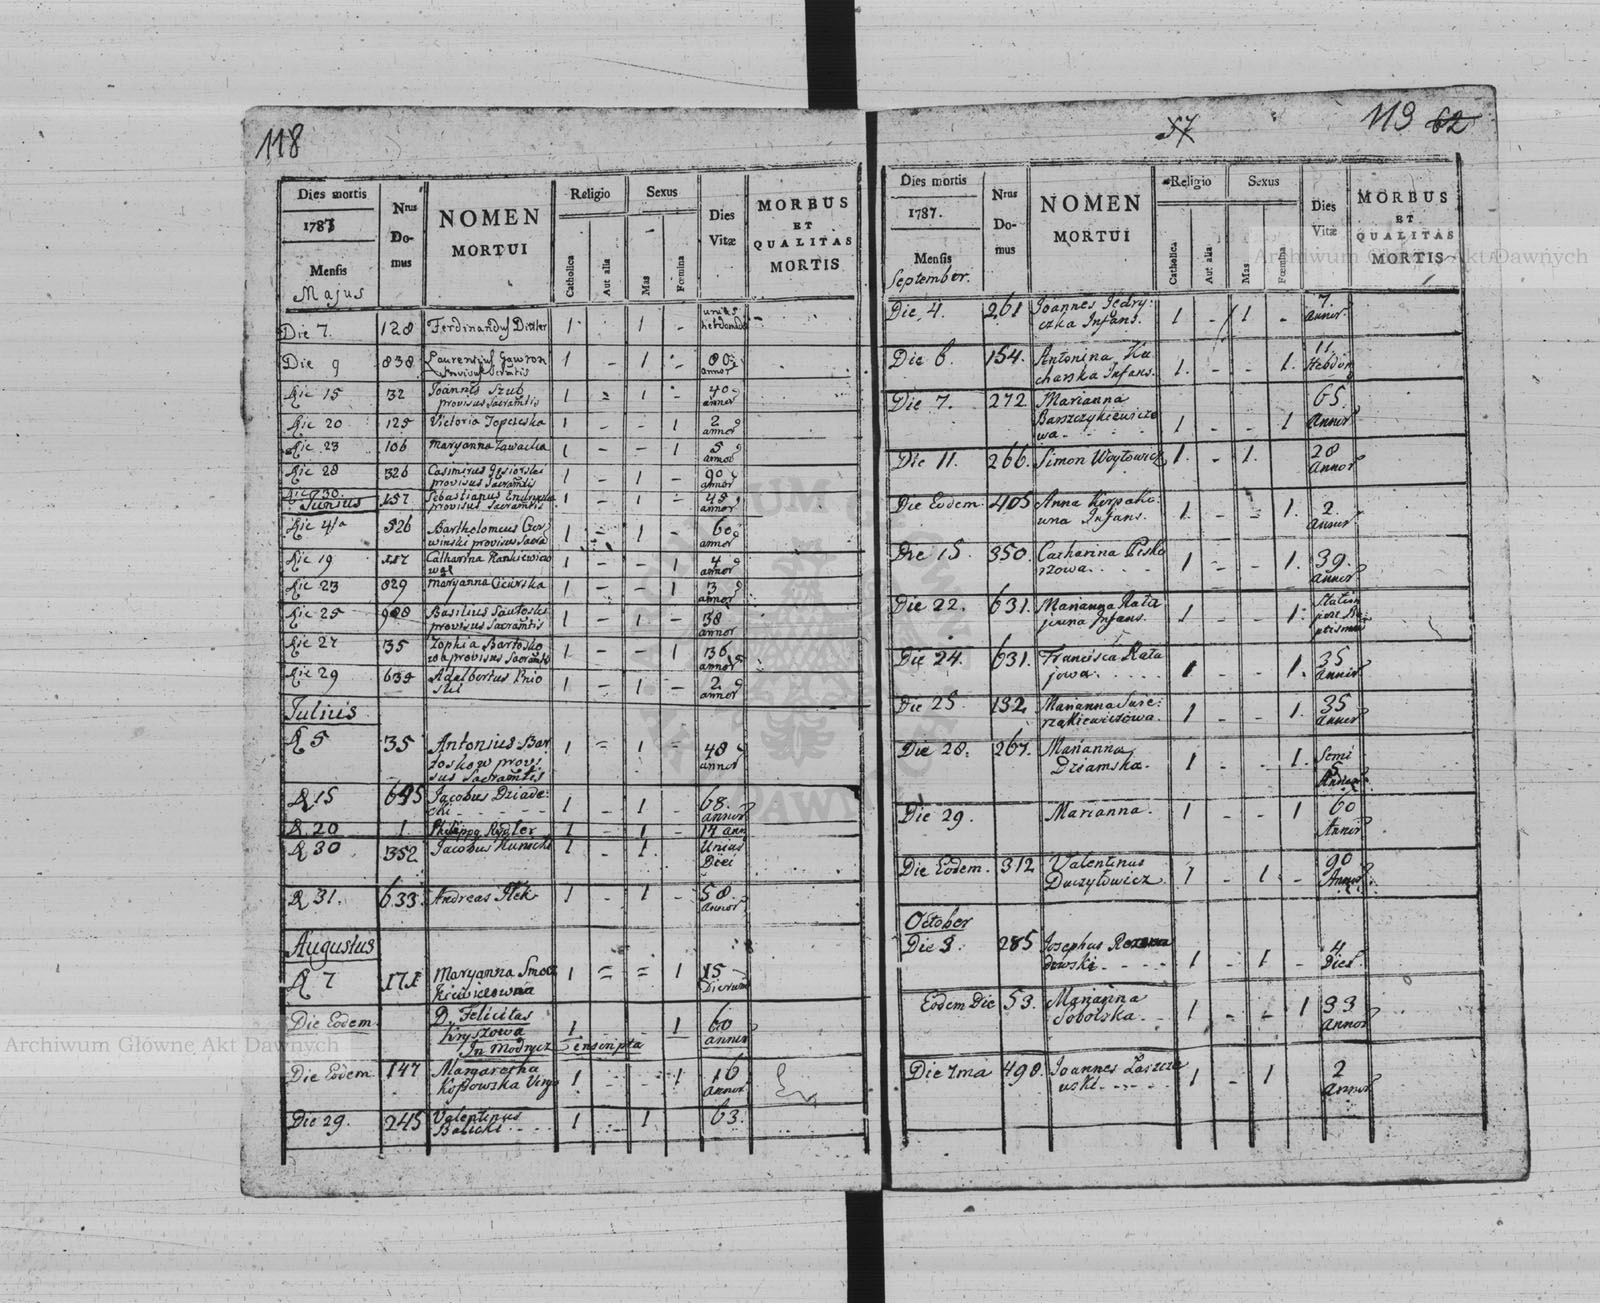 118
Dies mortis
1787
Mensis
Majus
Nrus
Do-
mus
NOMEN
MORTUI
Religio
Catholica
Aut alia
Sexus
Mas
Fœmina
Dies
Vitæ
MORBUS
ET
QUALITAS
MORTIS
Die 7. 128 Ferdinandus Dittler 1 1 - unius hebdomadis
Die 9 838 Laurentius Gawron 1 - 1 - 80 annor
Die 15 132 Joannes Szub 1 = 1 - 40
provisus Sacramtis annor
Die 20 125 Victoria 1 - - 1 2 annor
Die 23 106 Maryanna Zawacka 1 - - 1 5 annor
Die 28 326 Casimirus Gąsiorski 1 - 1 - 90
provisus Sacramtis annor
Die 30. 157 Sebastianus 1 - 1 - 45
provisus Sacramtis annor
Junius
Die 4ta 526 Bartholomeus Czer 1 = 1 - 60
winski provisus Sacra annor
Die 19 157 Catharina Rankiewiczo 1 - - 1 4
wa annor
Die 23 829 Maryanna 1 - - 1 3 annor
Die 25 988 Basilius 1 - 1 - 38
provisus Sacramtis annor
Die 27 135 Zophia Bartosko 1 - - 1 36
wa provisus Sacramtis annor
Die 29 635 Adalbertus Pnio 1 - 1 - 2
ski annor
Julius
D 5 35 Antonius Bar 1 = 1 - 48
toskow provi annor
sus Sacramtis
D 15 695 Jacobus Dziade: 1 - 1 - 68.
cki annor
D 20 1. Philippg Rydler 1 - 1 - 14 ann
D 30 352 Jacobus Kunicki 1 - 1 Unius
Diei
D 31. 633. Andreas Ilek 1 - 1 - 58.
annor
Augustus
D 7 171 Maryanna Smol 1 = = 1 15
kiewiczowna Dierum
Die Eodem D. Felicitas 1 1 60
Kryszowa annor
In Modrycz
Die Eodem 147 Margaretha 1 - - 1 16
Kopowska Virgo annor
Die 29. 245 Valentinus 1 1 63.
Balicki
57
119 62
Dies mortis
1787.
Mensis
September.
Nrus
Do-
mus
NOMEN
MORTUI
Religio
Catholica
Aut alia
Sexus
Mas
Fœmina
Dies
Vitæ
MORBUS
ET
QUALITAS
MORTIS
Die 4. 261 Joannes Jędry: 1 - 1 - 7.
czka Infans. annor
Die 6. 154. Antonina Ku 1. - - 1. 11.
charska Infans. Hebdom
Die 7. 272 Marianna 65
Barszczykiewiczo 1 - - 1 Annor
wa
Die 11. 266. Simon Woytowicz 1. - 1. 28
Annor
Die Eodem. 405 Anna Korpako: 1 - - 1. 2.
wna Infans. annor
Die 15. 350. Catharina Pisko 1 - - 1. 39.
rzowa annor
Die 22. 631. Marianna Rata 1 - - 1. Statim
jowna Infans. post Ba
ptismum
Die 24. 631. Francisca Rata 1 1. 35
jowa annor
Die 25. 132 Marianna 1 - - 1. 35
annor
Die 28. 267. Marianna 1 - - 1. Semi
Dziamska. Annor
Die 29. Marianna. 1 - - 1 60
Annor
Die Eodem. 312 Valentinus 90
Duczytowicz 1 - 1. - Annor
October
Die 3. 285 Josephus 4
dowski 1 - 1 - Dies
Eodem Die 53. Marianna 1 - - 1 33
Sobolska annor
Die 7ma 490. Joannes Łaszcze 1 - 1 2
wski annor
Archiwum Główne Akt Dawnych
Archiwum Główne Akt Dawnych